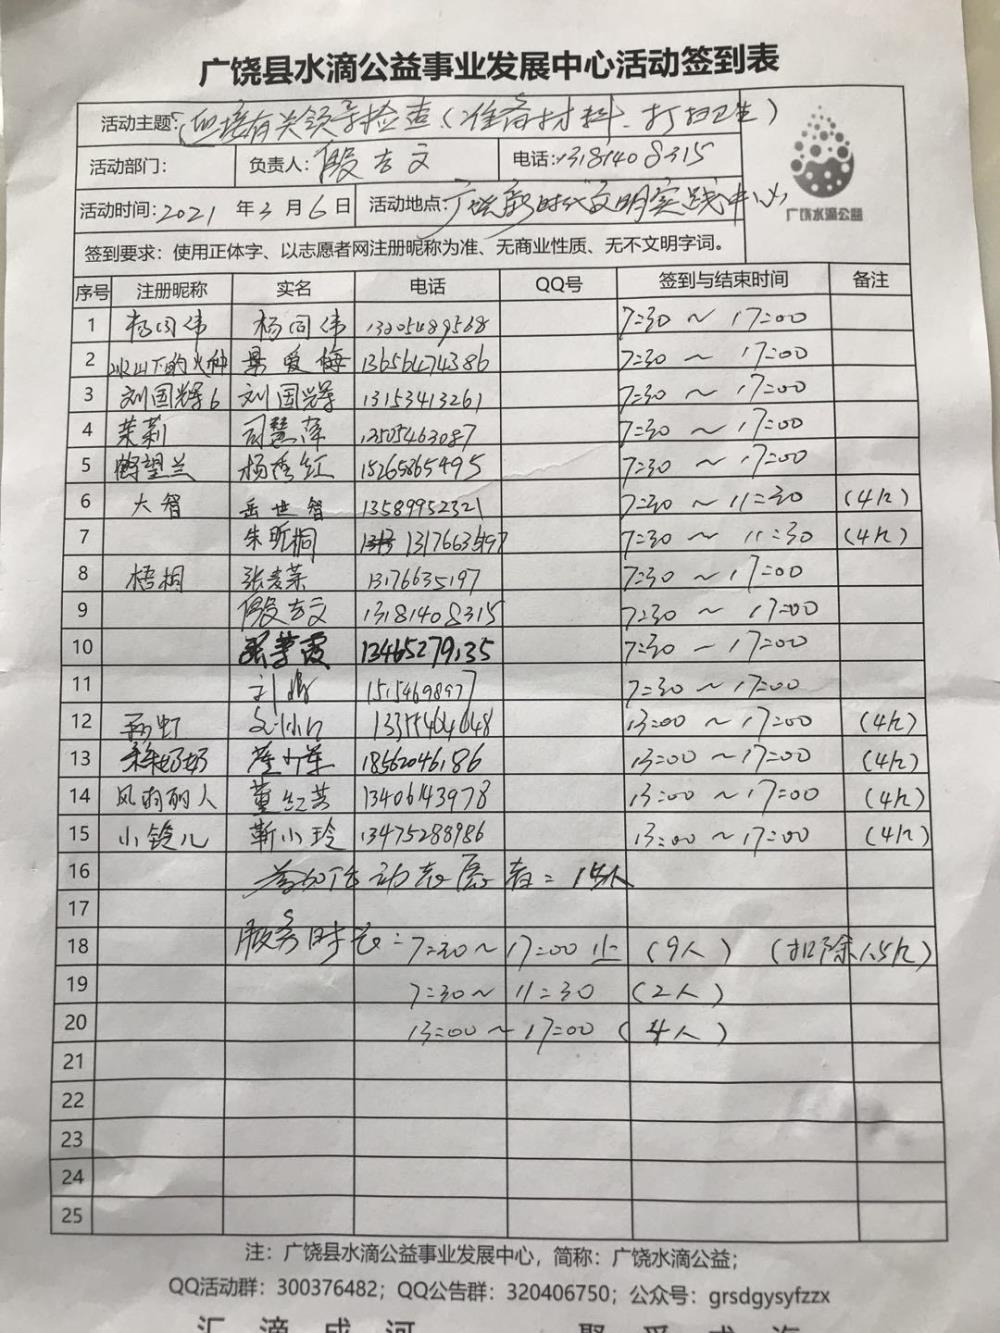 广饶县水滴公益事业发展中心活动签到表
活动主题: 迎接有关领导检查(准备材料、打扫卫生)
活动部门: 负责人: 殷吉文 电话: 13181408315
活动时间: 2021 年 3 月 6 日 活动地点: 广饶新时代文明实践中心
广饶水滴公益
签到要求: 使用正体字、以志愿者网注册昵称为准、无商业性质、无不文明字词。
序号 注册昵称 实名 电话 QQ号 签到与结束时间 备注
1 杨同伟 杨同伟 7:30 ~ 17:00
2 冰山下的火种 景爱梅 13656474386 7:30 ~ 17:00
3 刘国辉6 刘国辉 13153413261 7:30 ~ 17:00
4 茉莉 司慧萍 13505463087 7:30 ~ 17:00
5 鹤望兰 杨秀红 15265865495 7:30 ~ 17:00
6 大智 岳世智 13589952321 7:30 ~ 11:30 (4h)
7 朱昕桐 7:30 ~ 11:30 (4h)
8 梧桐 张麦荣 13176635197 7:30 ~ 17:00
9 殷吉文 13181408315 7:30 ~ 17:00
10 张苹霞 13465279135 7:30 ~ 17:00
11 7:30 ~ 17:00
12 13:00 ~ 17:00 (4h)
13 18562046186 13:00 ~ 17:00 (4h)
14 风雨丽人 董红芸 13406143978 13:00 ~ 17:00 (4h)
15 小铃儿 靳小玲 13475288986 13:00 ~ 17:00 (4h)
16 参加活动志愿者: 15人
17
18 服务时长: 7:30 ~ 17:00 止 (9人) (扣除1.5h)
19 7:30 ~ 11:30 (2人)
20 13:00 ~ 17:00 (4人)
21
22
23
24
25
注: 广饶县水滴公益事业发展中心, 简称: 广饶水滴公益;
QQ活动群: 300376482; QQ公告群: 320406750; 公众号: grsdgysyfzzx
汇 滴 成 河